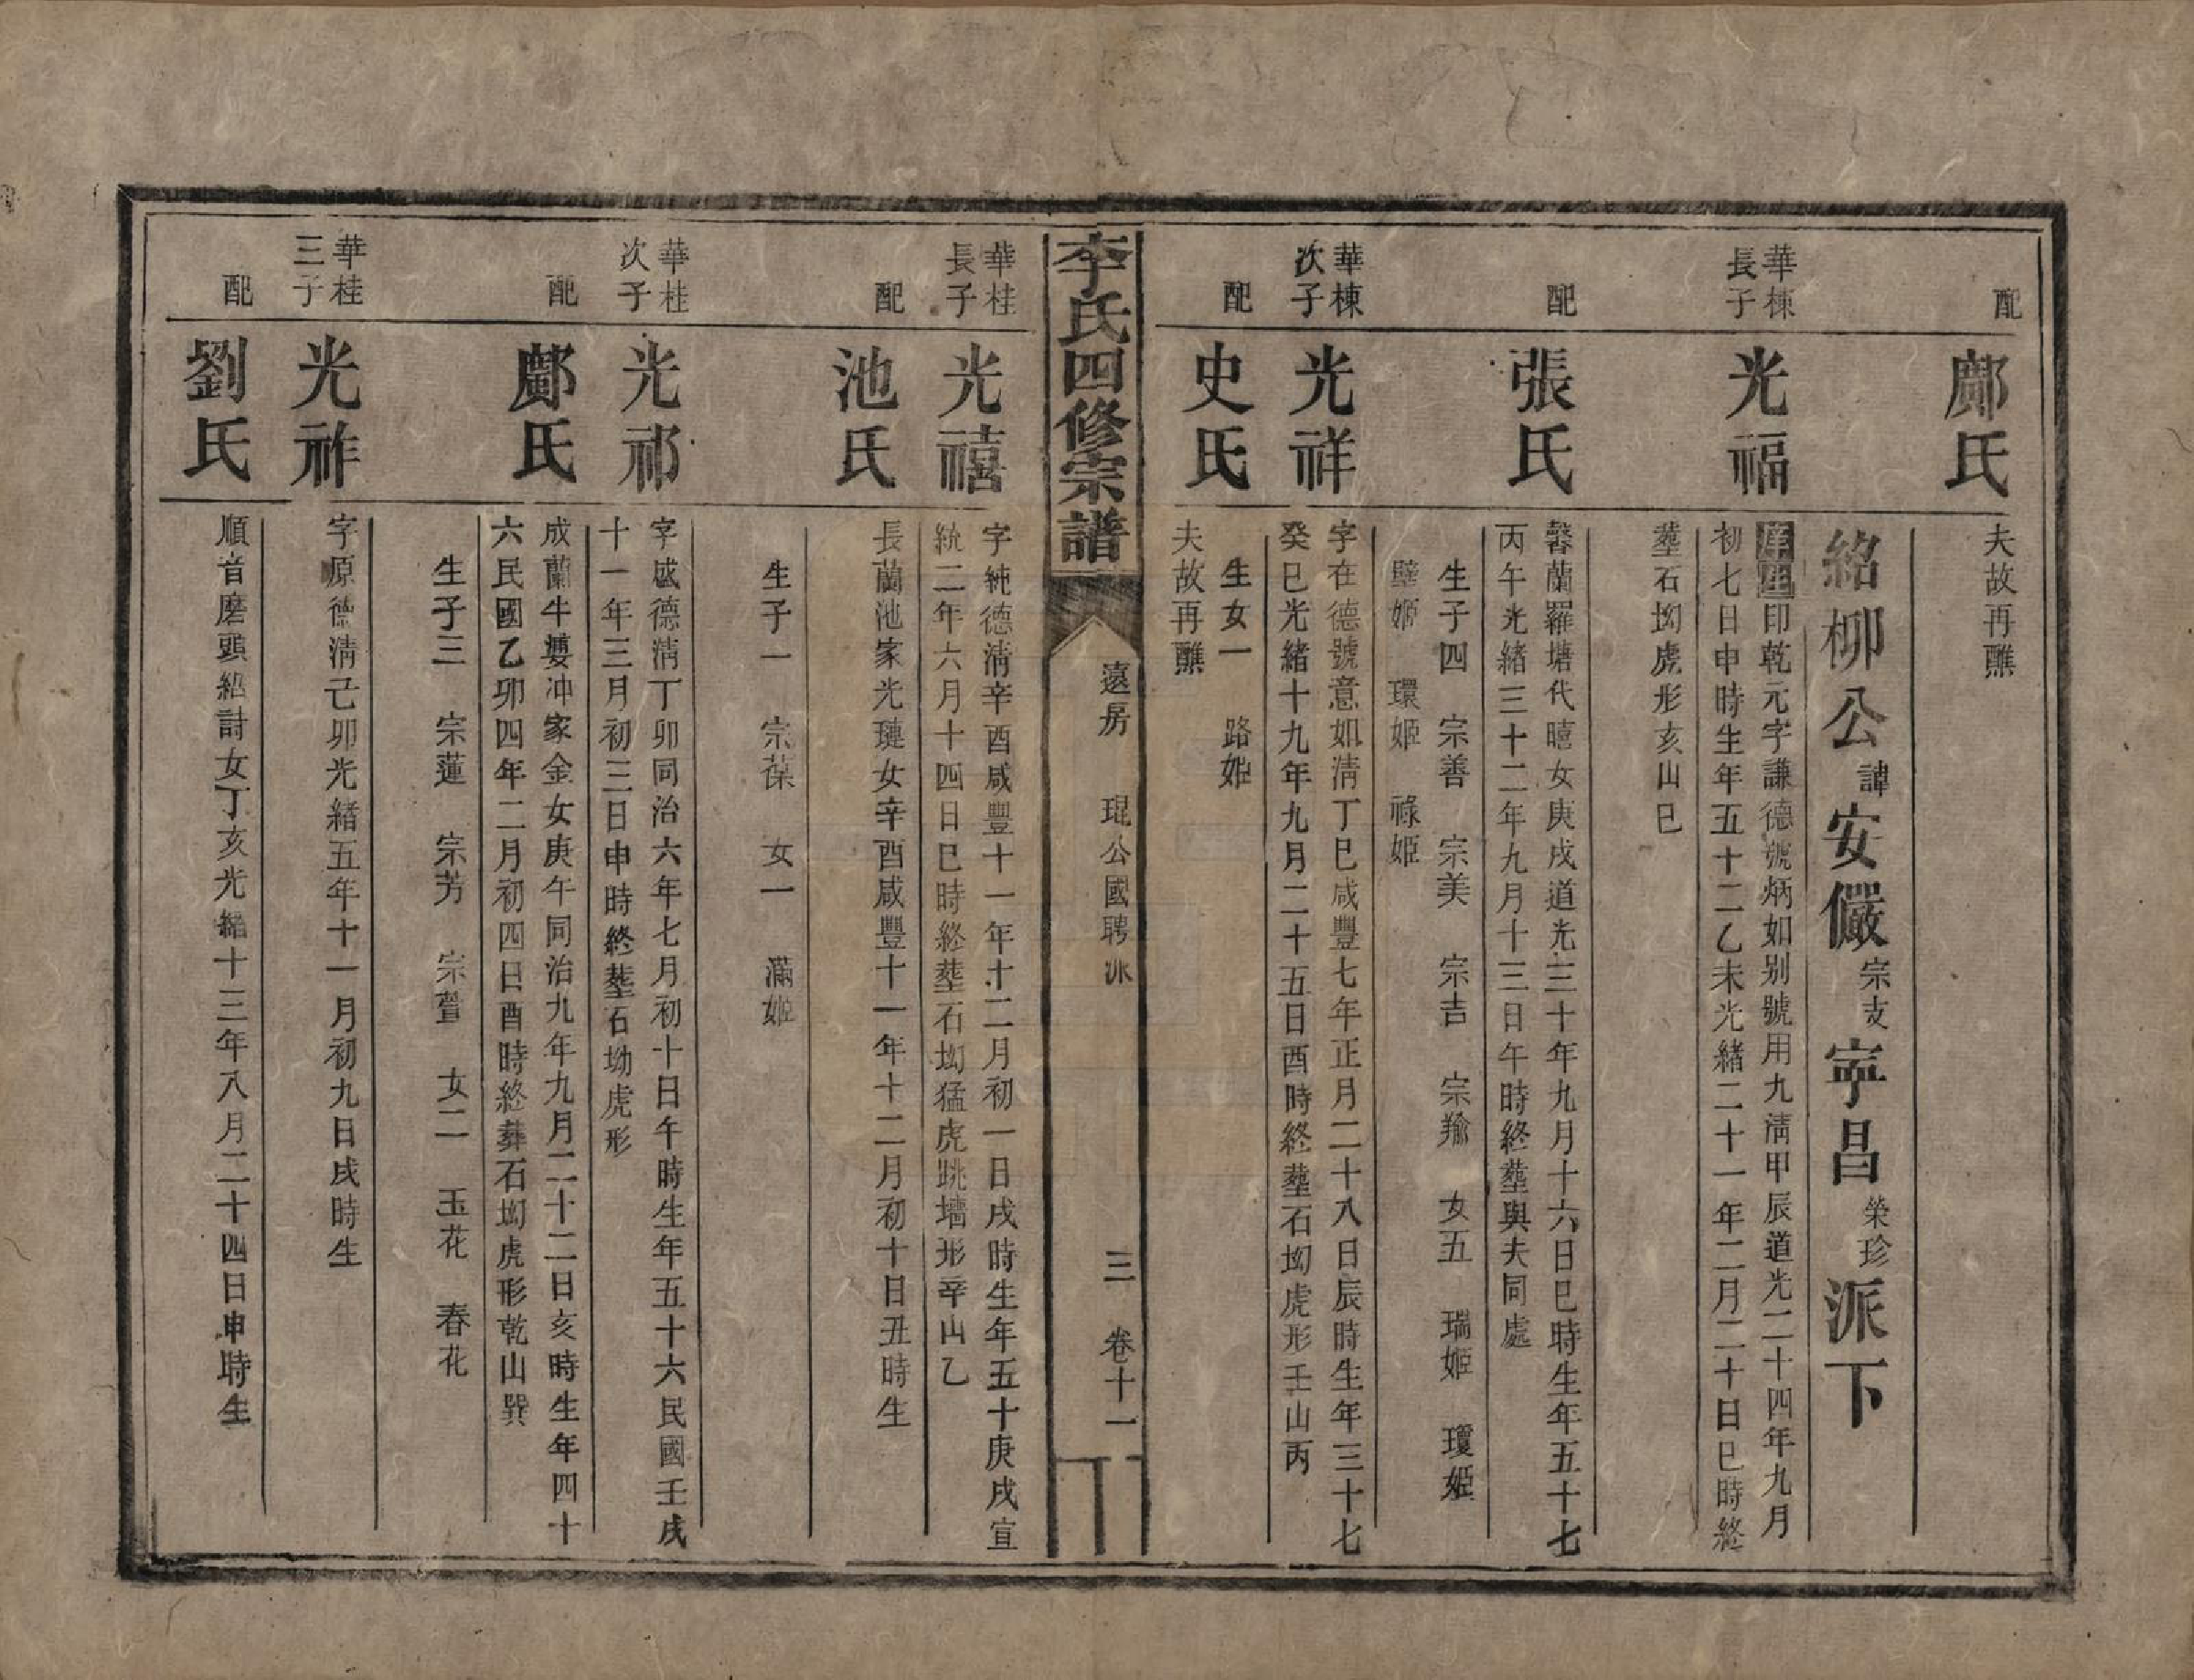 配
鄺氏
夫故再醮
紹柳公諱安儼宗支寧昌榮珍派下
華棟
長子
光福
庠生印乾元字謙德號炳如别號用九淸甲辰道光二十四年九月
初七日申時生年五十二乙未光緒二十一年二月二十日巳時終
塟石㘭虎形亥山巳
配
張氏
馨蘭羅塘代暿女庚戌道光三十年九月十六日巳時生年五十七
丙午光緒三十二年九月十三日午時終塟與夫同處
生子四 宗善 宗美 宗吉 宗羭 女五 瑞姬 瓊姬
璧姬 環姬 祿姬
華棟
次子
光祥
字在德號意如淸丁巳咸豐七年正月二十八日辰時生年三十七
癸巳光緒十九年九月二十五日酉時終塟石㘭虎形壬山丙
配
史氏
生女一 路姬
夫故再醮
李氏四修宗譜
遠房 琨公國聘派
三 卷十一
華桂
長子
光禧
字純德淸辛酉咸豐十一年十二月初一日戌時生年五十庚戌宣
統二年六月十四日巳時終塟石㘭猛虎跳墻形辛山乙
配
池氏
長蘭池家光璉女辛酉咸豐十一年十二月初十日丑時生
生子一 宗葆 女一 滿姬
華桂
次子
光祁
字盛德淸丁卯同治六年七月初十日午時生年五十六民國壬戌
十一年三月初三日申時終塟石坳虎形
配
鄺氏
成蘭牛婁冲家金女庚午同治九年九月二十二日亥時生年四十
六民國乙卯四年二月初四日酉時終葬石㘭虎形乾山巽
生子三 宗蓮 宗芳 宗萱 女二 玉花 春花
華桂
三子
光祚
字原德淸己卯光緒五年十一月初九日戌時生
配
劉氏
順音磨頭紹詩女丁亥光緒十三年八月二十四日申時生